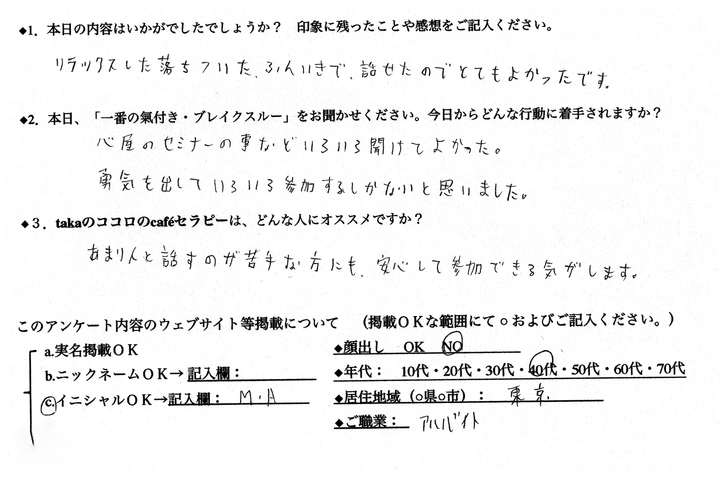 ◆1．本日の内容はいかがでしたでしょうか？　印象に残ったことや感想をご記入ください。
リラックスした落ちついた、ふんいきで、話せたのでとてもよかったです。
◆2．本日、「一番の氣付き・ブレイクスルー」をお聞かせください。今日からどんな行動に着手されますか？
心屋のセミナーの事などいろいろ聞けてよかった。
勇気を出していろいろ参加するしかないと思いました。
◆３．takaのココロのcaféセラピーは、どんな人にオススメですか？
あまり人と話すのが苦手な方にも、安心して参加できる気がします。
このアンケート内容のウェブサイト等掲載について　（掲載ＯＫな範囲にて○およびご記入ください。）
a.実名掲載ＯＫ
b.ニックネームＯＫ→記入欄：
c.イニシャルＯＫ→記入欄：　M.A
◆顔出し　OK　NO
◆年代：　10代・20代・30代・40代・50代・60代・70代
◆居住地域（○県○市）：　東京
◆ご職業：　アルバイト